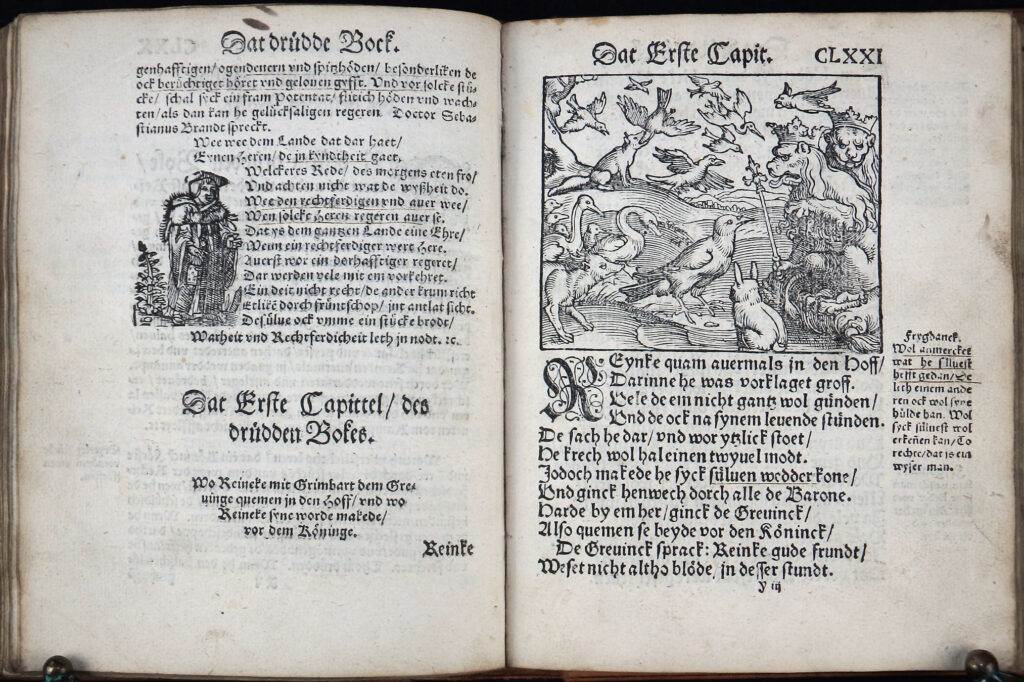 Dat drüdde Bock.
genhafftigen/ ogendenern vnd spitzhöden/ besonderliken de
ock berüchtiget höret vnd geloven gyfft. Vnd vor solcke stü-
cke/ schal syck ein fram Potentat/ flitich höden vnd wach-
ten/ als dan kan he gelücksaligen regeren. Doctor Seba-
stianus Brandt spreckt.
Wee wee dem Lande dat dar haet/
Eynen Heren/ de in kyndtheit gaet.
Welckeres Rede/ des morgens eten fro/
Vnd achten nicht wat de wyßheit do.
Wee den rechtferdigen vnd auer wee/
Wen solcke Heren regeren auer se.
Dat ys dem gantzen Lande eine Ehre/
Wenn ein rechtferdiger wert Here.
Auerst wor ein dorhafftiger regeret/
Dar werden vele mit em vorkehret.
Ein deit nicht recht/ de ander krum richt
Etlike dorch früntschop/ int antlat sicht.
Desülue ock vmme ein stücke brodt/
Warheit vnd Rechtferdicheit leth jn nodt. ꝛc.
Dat Erste Capittel/ des
drüdden Bokes.
Wo Reineke mit Grimbart dem Gre-
uinge quemen jn den Hoff/ vnd wo
Reineke syne worde makede/
vor dem Köninge.
Reinke
Dat Erste Capit. CLXXI
REynke quam auermals jn den Hoff/
Darinne he was vorklaget groff.
Vele de em nicht gantz wol günden/
Vnd de ock na synem leuende stünden.
De sach he dar/ vnd wor ytzlick stoet/
He krech wol hal einen twyuel modt.
Jodoch makede he syck süluen wedder kone/
Vnd ginck henwech dorch alle de Barone.
Harde by em her/ ginck de Greuinck/
Also quemen se beyde vor den Köninck/
De Greuinck sprack: Reinke gude frundt/
Weset nicht altho blöde, jn desser stundt.
y iij
Frygdanck.
Wol anmercket
wat he süluest
hefft gedan/ De
lich einem ande
ren ock wol syne
hülde han. Wol
syck sülvest wol
erkeñen kan/ To
rechte/ dat is ein
wyser man.